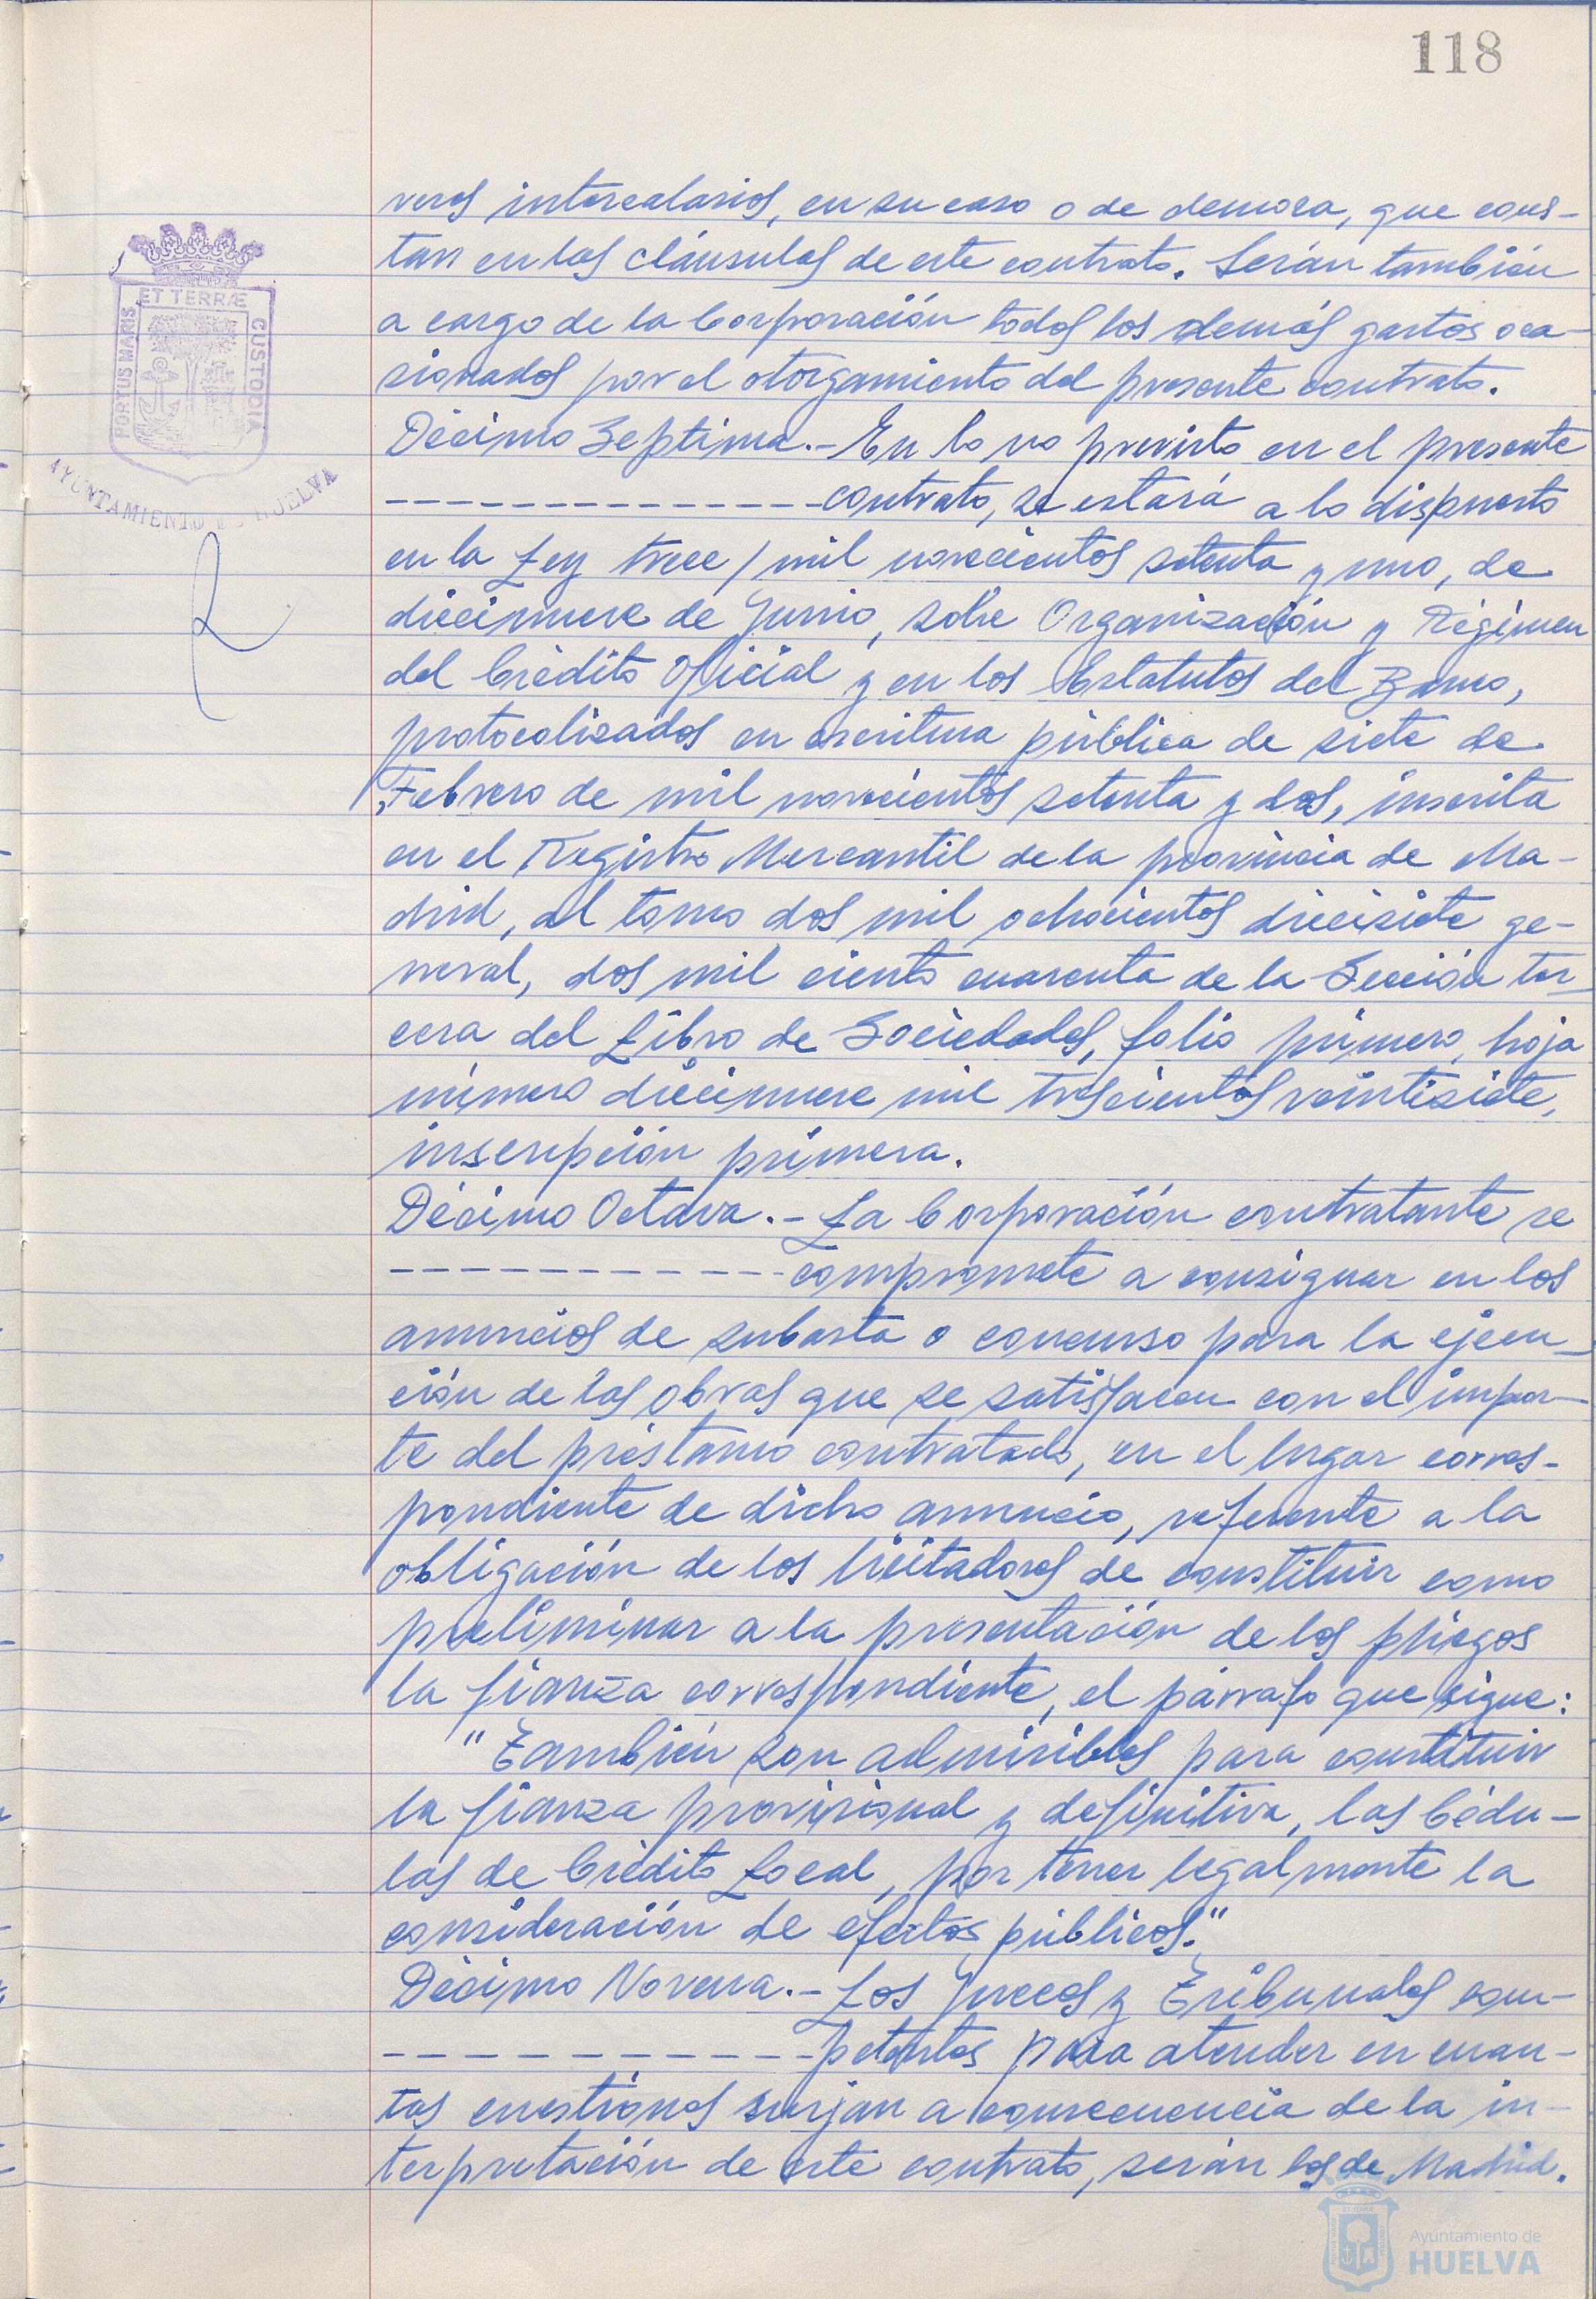 118
reses intercalarios, en su caso o de demora, que cons-
tan en las cláusulas de este contrato. Serán también
a cargo de la Corporación todos los demás gastos oca-
sionados por el otorgamiento del presente contrato.
Décimo Septima.- En lo no previsto en el presente
-------------- contrato, se estará a lo dispuesto
en la Ley trece/mil novecientos setenta y uno, de
diecinueve de Junio, sobre Organización y Régimen
del Crédito Oficial y en los Estatutos del Banco,
protocolizados en escritura pública de siete de
Febrero de mil novecientos setenta y dos, inscrita
en el Registro Mercantil de la provincia de Ma-
drid, al tomo dos mil ochocientos diecisiete ge-
neral, dos mil ciento cuarenta de la Sección ter-
cera del Libro de Sociedades, folio primero, hoja
número diecinueve mil trescientos veintisiete,
inscripción primera.
Décimo Octava.- La Corporación contratante se
------------ compromete a consignar en los
anuncios de subasta o concurso para la ejecu-
ción de las obras que se satisfacen con el impor-
te del préstamo contratado, en el lugar corres-
pondiente de dicho anuncio, referente a la
obligación de los licitadores de constituir como
preliminar a la presentación de los pliegos
la fianza correspondiente, el párrafo que sigue:
"También son admisibles para constituir
la fianza provisional y definitiva, las Cédu-
las de Crédito Local, por tener legalmente la
consideración de efectos públicos."
Décimo Novena.- Los Jueces y Tribunales com-
------------ petentes para atender en cuan-
tas cuestiones surjan a consecuencia de la in-
terpretación de este contrato, serán los de Madrid.
PORTUS MARIS ET TERRÆ CUSTODIA
AYUNTAMIENTO DE HUELVA
Ayuntamiento de
HUELVA